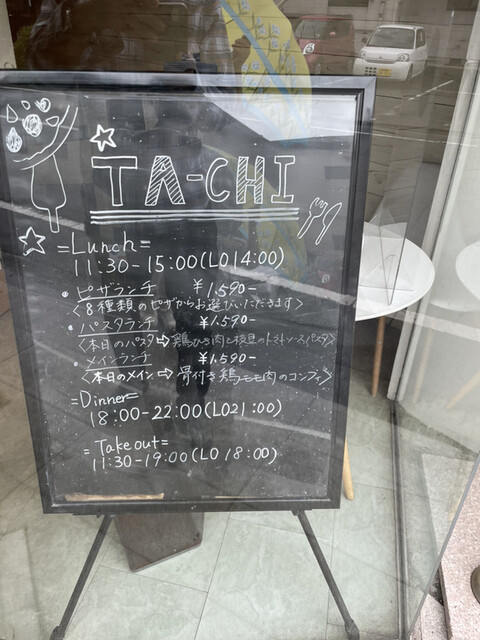 TA-CHI
=Lunch=
11:30-15:00(LO14:00)
・ピザランチ ¥1.590-
〈8種類のピザからお選びいただきます〉
・パスタランチ ¥1.590-
〈本日のパスタ⇨鶏ひき肉と枝豆のトマトソースパスタ〉
・メインランチ ¥1.590-
〈本日のメイン⇨骨付き鶏モモ肉のコンフィ〉
=Dinner=
18:00-22:00(LO21:00)
=Takeout=
11:30-19:00(LO 18:00)